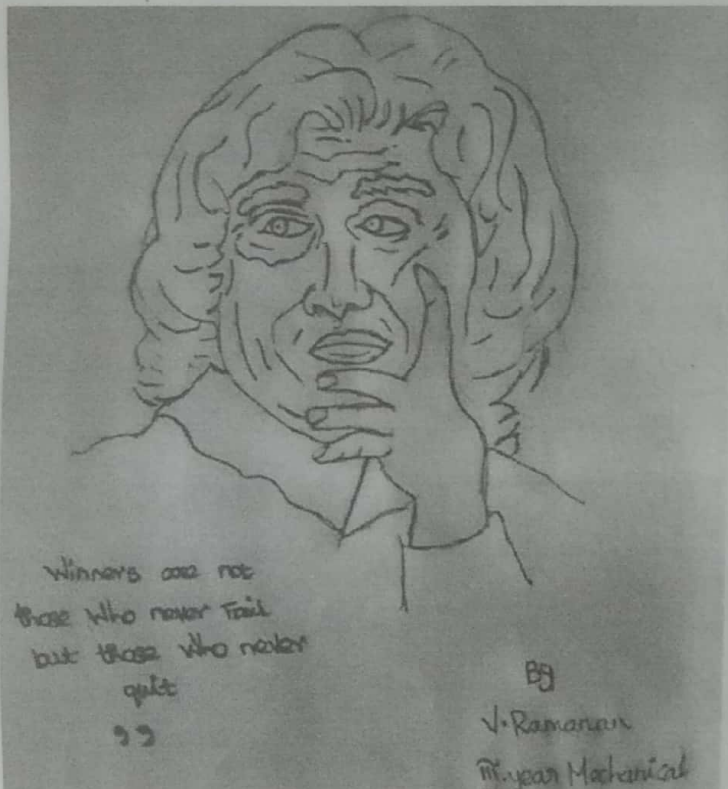 Winners are not
those Who never Fail
but those Who never
quit
”
By
V. Ramanan
III. year Mechanical